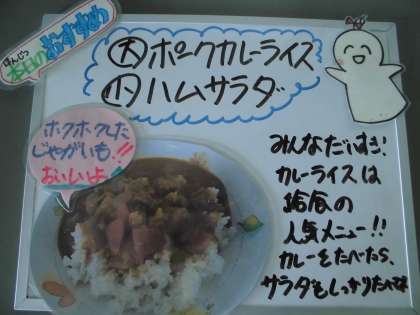 ほんじつ
本日のおすすめ
大ポークカレーライス
小ハムサラダ
ホクホクした
じゃがいも!!
おいしいよ
みんなだいすき!
カレーライスは
給食の
人気メニュー!!
カレーをたべたら、
サラダもしっかりたべてね